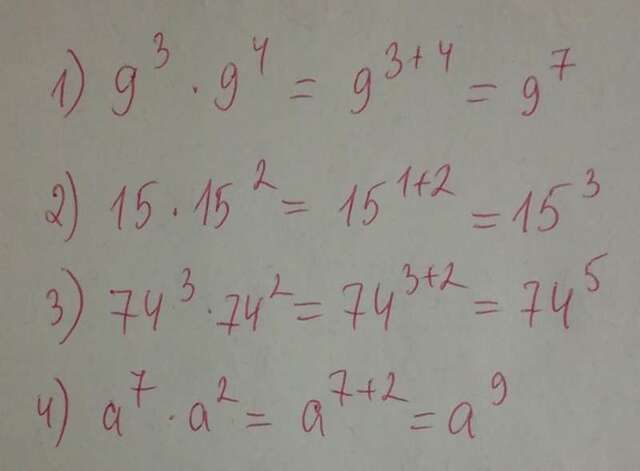 1) 9³ · 9⁴ = 9³⁺⁴ = 9⁷
2) 15 · 15² = 15¹⁺² = 15³
3) 74³ · 74² = 74³⁺² = 74⁵
4) a⁷ · a² = a⁷⁺² = a⁹